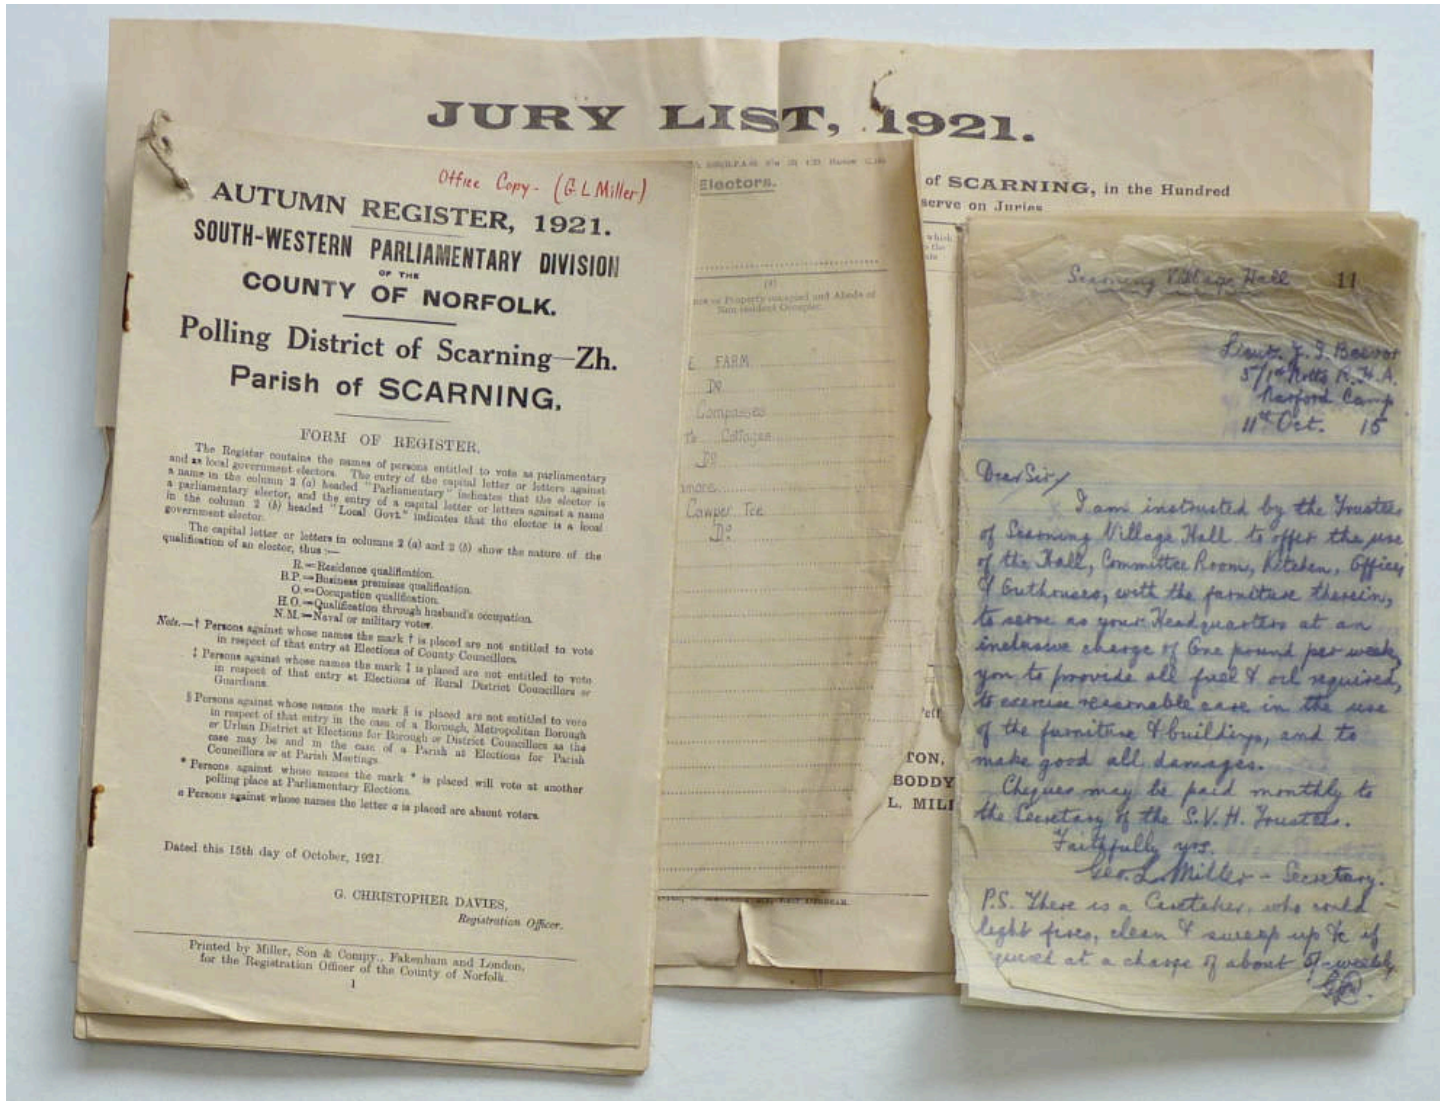 JURY LIST, 1921.
of SCARNING, in the Hundred
serve on Juries
which
the
Office Copy - (G. L Miller)
AUTUMN REGISTER, 1921.
SOUTH-WESTERN PARLIAMENTARY DIVISION
OF THE
COUNTY OF NORFOLK.
Polling District of Scarning—Zh.
Parish of SCARNING.
FORM OF REGISTER.
The Register contains the names of persons entitled to vote as parliamentary
and as local government electors. The entry of the capital letter or letters against
a name in the column 2 (a) headed "Parliamentary" indicates that the elector is
a parliamentary elector, and the entry of a capital letter or letters against a name
in the column 2 (b) headed "Local Govt." indicates that the elector is a local
government elector.
The capital letter or letters in columns 2 (a) and 2 (b) show the nature of the
qualification of an elector, thus :—
R.=Residence qualification.
B.P.=Business premises qualification.
O.=Occupation qualification.
H.O.=Qualification through husband's occupation.
N.M.=Naval or military voter.
Note.—† Persons against whose names the mark † is placed are not entitled to vote
in respect of that entry at Elections of County Councillors.
‡ Persons against whose names the mark ‡ is placed are not entitled to vote
in respect of that entry at Elections of Rural District Councillors or
Guardians.
§ Persons against whose names the mark § is placed are not entitled to vote
in respect of that entry in the case of a Borough, Metropolitan Borough
or Urban District at Elections for Borough or District Councillors as the
case may be and in the case of a Parish at Elections for Parish
Councillors or at Parish Meetings.
* Persons against whose names the mark * is placed will vote at another
polling place at Parliamentary Elections.
a Persons against whose names the letter a is placed are absent voters.
Dated this 15th day of October, 1921.
G. CHRISTOPHER DAVIES,
Registration Officer.
Printed by Miller, Son & Compy., Fakenham and London,
for the Registration Officer of the County of Norfolk.
1
Electors.
(3)
or Property occupied and Abode of
Non-resident Occupier.
FARM
Do
Compasses
Cottages
Do
more
Cowper Tce
Do
TON,
BODDY
L. MILL
Scarning Village Hall 11
Lieut.
5/1st Notts R.H.A.
Narford Camp
11th Oct. 15
Dear Sir/
I am instructed by the Trustees
of Scarning Village Hall to offer the use
of the Hall, Committee Room, Kitchen, Offices
& Outhouses, with the furniture therein,
to serve as your Headquarters at an
inclusive charge of One pound per week,
you to provide all fuel & oil required,
to exercise reasonable care in the use
of the furniture & buildings, and to
make good all damages.
Cheques may be paid monthly to
the Secretary of the S.V.H. Trustees.
Faithfully yrs.
Geo. L. Miller - Secretary.
P.S. There is a Caretaker, who could
light fires, clean & sweep up &c if
quired at a charge of about 5/- weekly